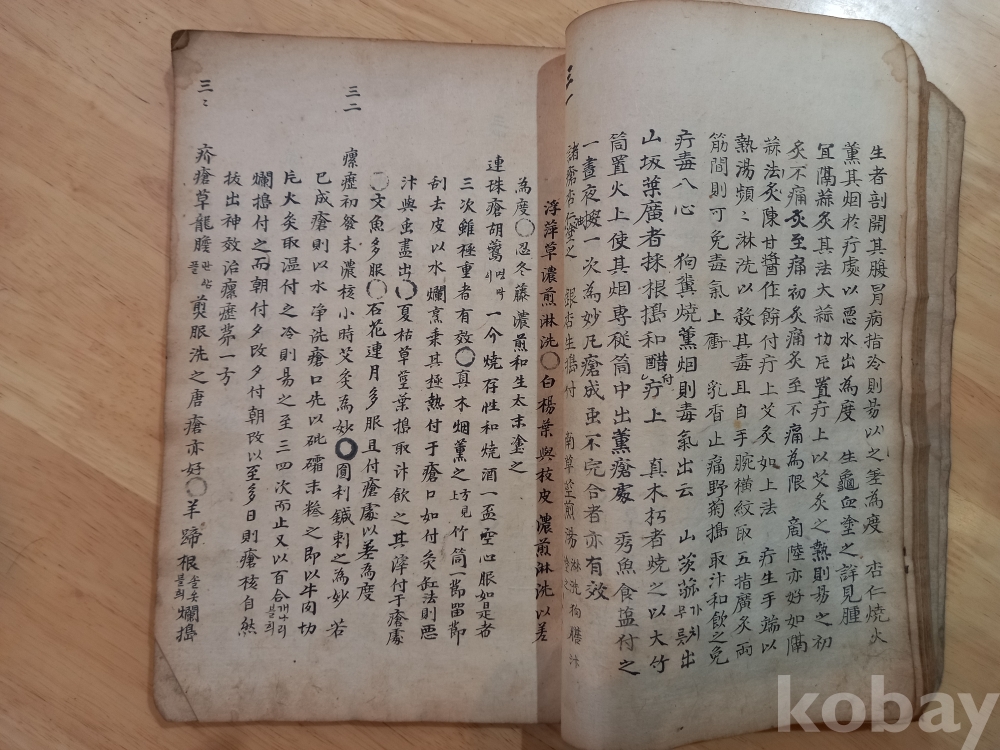 生者剖開其腹冐病指冷則易以之差為度 杏仁燒火
薰其烟於疔處以悪水出為度 生龜血塗之詳見腫
宜隔蒜灸其法大蒜切片置疔上以艾灸之熱則易之初
灸不痛灸至痛初灸痛灸至不痛為限 商陸亦好如隔
蒜法灸陳甘醬作餠付疔上艾灸如上法 疔生手端以
熱湯頻〻淋洗以殺其毒且自手腕横紋取五指廣灸两
筋間則可免毒氣上衝 乳香止痛野菊搗取汁和飮之免
疔毒入心 狗糞燒薰烟則毒氣出云 山茨菰 가치무릇 出
山坂葉廣者採根搗和醋付疔上 真木朽者燒之以大竹
筒置火上使其烟專従筒中出薰瘡處 秀魚食塩付之
一晝夜一次為妙凡瘡成虫不完合者亦有效
諸瘡杏仁塗之 生搗付 南草莖煎湯淋洗
浮萍草濃煎淋洗〇白楊葉與枝皮濃煎淋洗以差
為度〇忍冬藤濃煎和生太末塗之
連珠瘡胡鷰 一令燒存性和燒酒一盃空心服如是者
三次雖極重者有效〇真木烟薰之 方見上 竹筒一節留節
刮去皮以水爛烹乗其極熱付于瘡口如付灸缸法則悪
汁與虫盡出〇夏枯草莖葉搗取汁飮之其滓付于瘡處
〇文魚多服〇石花連月多服且付瘡處以差為度
三二
瘰癧初發未濃核小時艾灸為妙〇圎利鍼刺之為妙 若
已成瘡則以水净洗瘡口先以硇礵末糝之即以牛肉切
片大灸取温付之冷則易之至三四次而止又以百合 개나리불희
爛搗付之而朝付夕改夕付朝改以至多日則瘡核自然
拔出神效治瘰癧苐一方
三〻
疥瘡草龍膽 煎服洗之唐瘡亦好〇羊蹄根 솔옷불희 爛搗